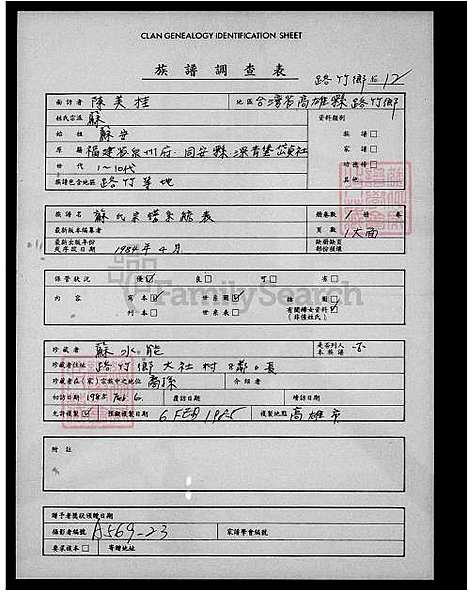 CLAN GENEALOGY IDENTIFICATION SHEET
族譜調查表
路竹鄉 12
面訪者 陳美桂 地區 台灣省高雄縣路竹鄉
姓氏宗派 蘇 資料類別
始祖 蘇安 族譜□
原籍 福建省泉州府同安縣 家譜□
世代 1~10代
族譜包含地區 路竹等地 其他
族譜名 蘇氏 系統表 1 卷
最新版本編纂者 頁數 1大面
最新出版年份 1984年4月
保管狀況 優☑ 良□ 可□ 劣□
內容 寫本☑ 世系圖☑
刊本□ 世系表□ 有關婦女資料☑
FamilySearch
珍藏者 蘇水能 是否列入本族譜 否
珍藏者住址 路竹鄉大社村
珍藏者在(家)宗族中之地位 裔孫 介紹者
初訪日期 1985 Feb 6. 復訪日期 續訪日期
允許複製☑ 微縮複製日期 6 FEB 1985 複製地點 高雄市
附註
贈予者獎狀頒贈日期
攝影者編號 A569-23 家譜學會編號
要業複本□ 寄贈地址